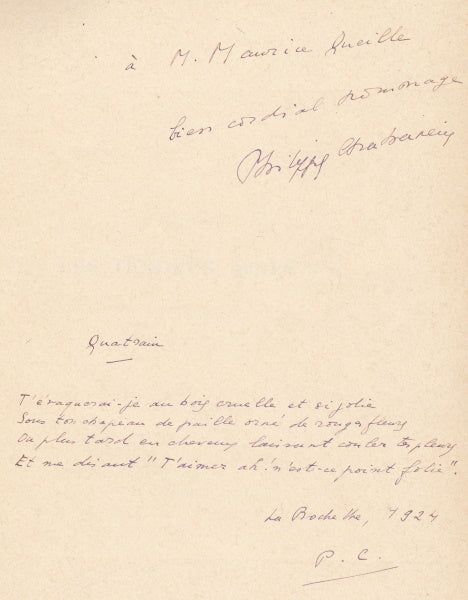 à M. Maurice Queille
bien cordial hommage
Philippe Chabaneix
Quatrain
T'évoquerai-je au bois cruelle et si jolie
Sous ton chapeau de paille orné de rouges fleurs
Ou plus tard en cheveux laissant couler tes pleurs
Et me disant "T'aimer ah! n'est-ce point folie".
La Rochelle, 1924
P. C.